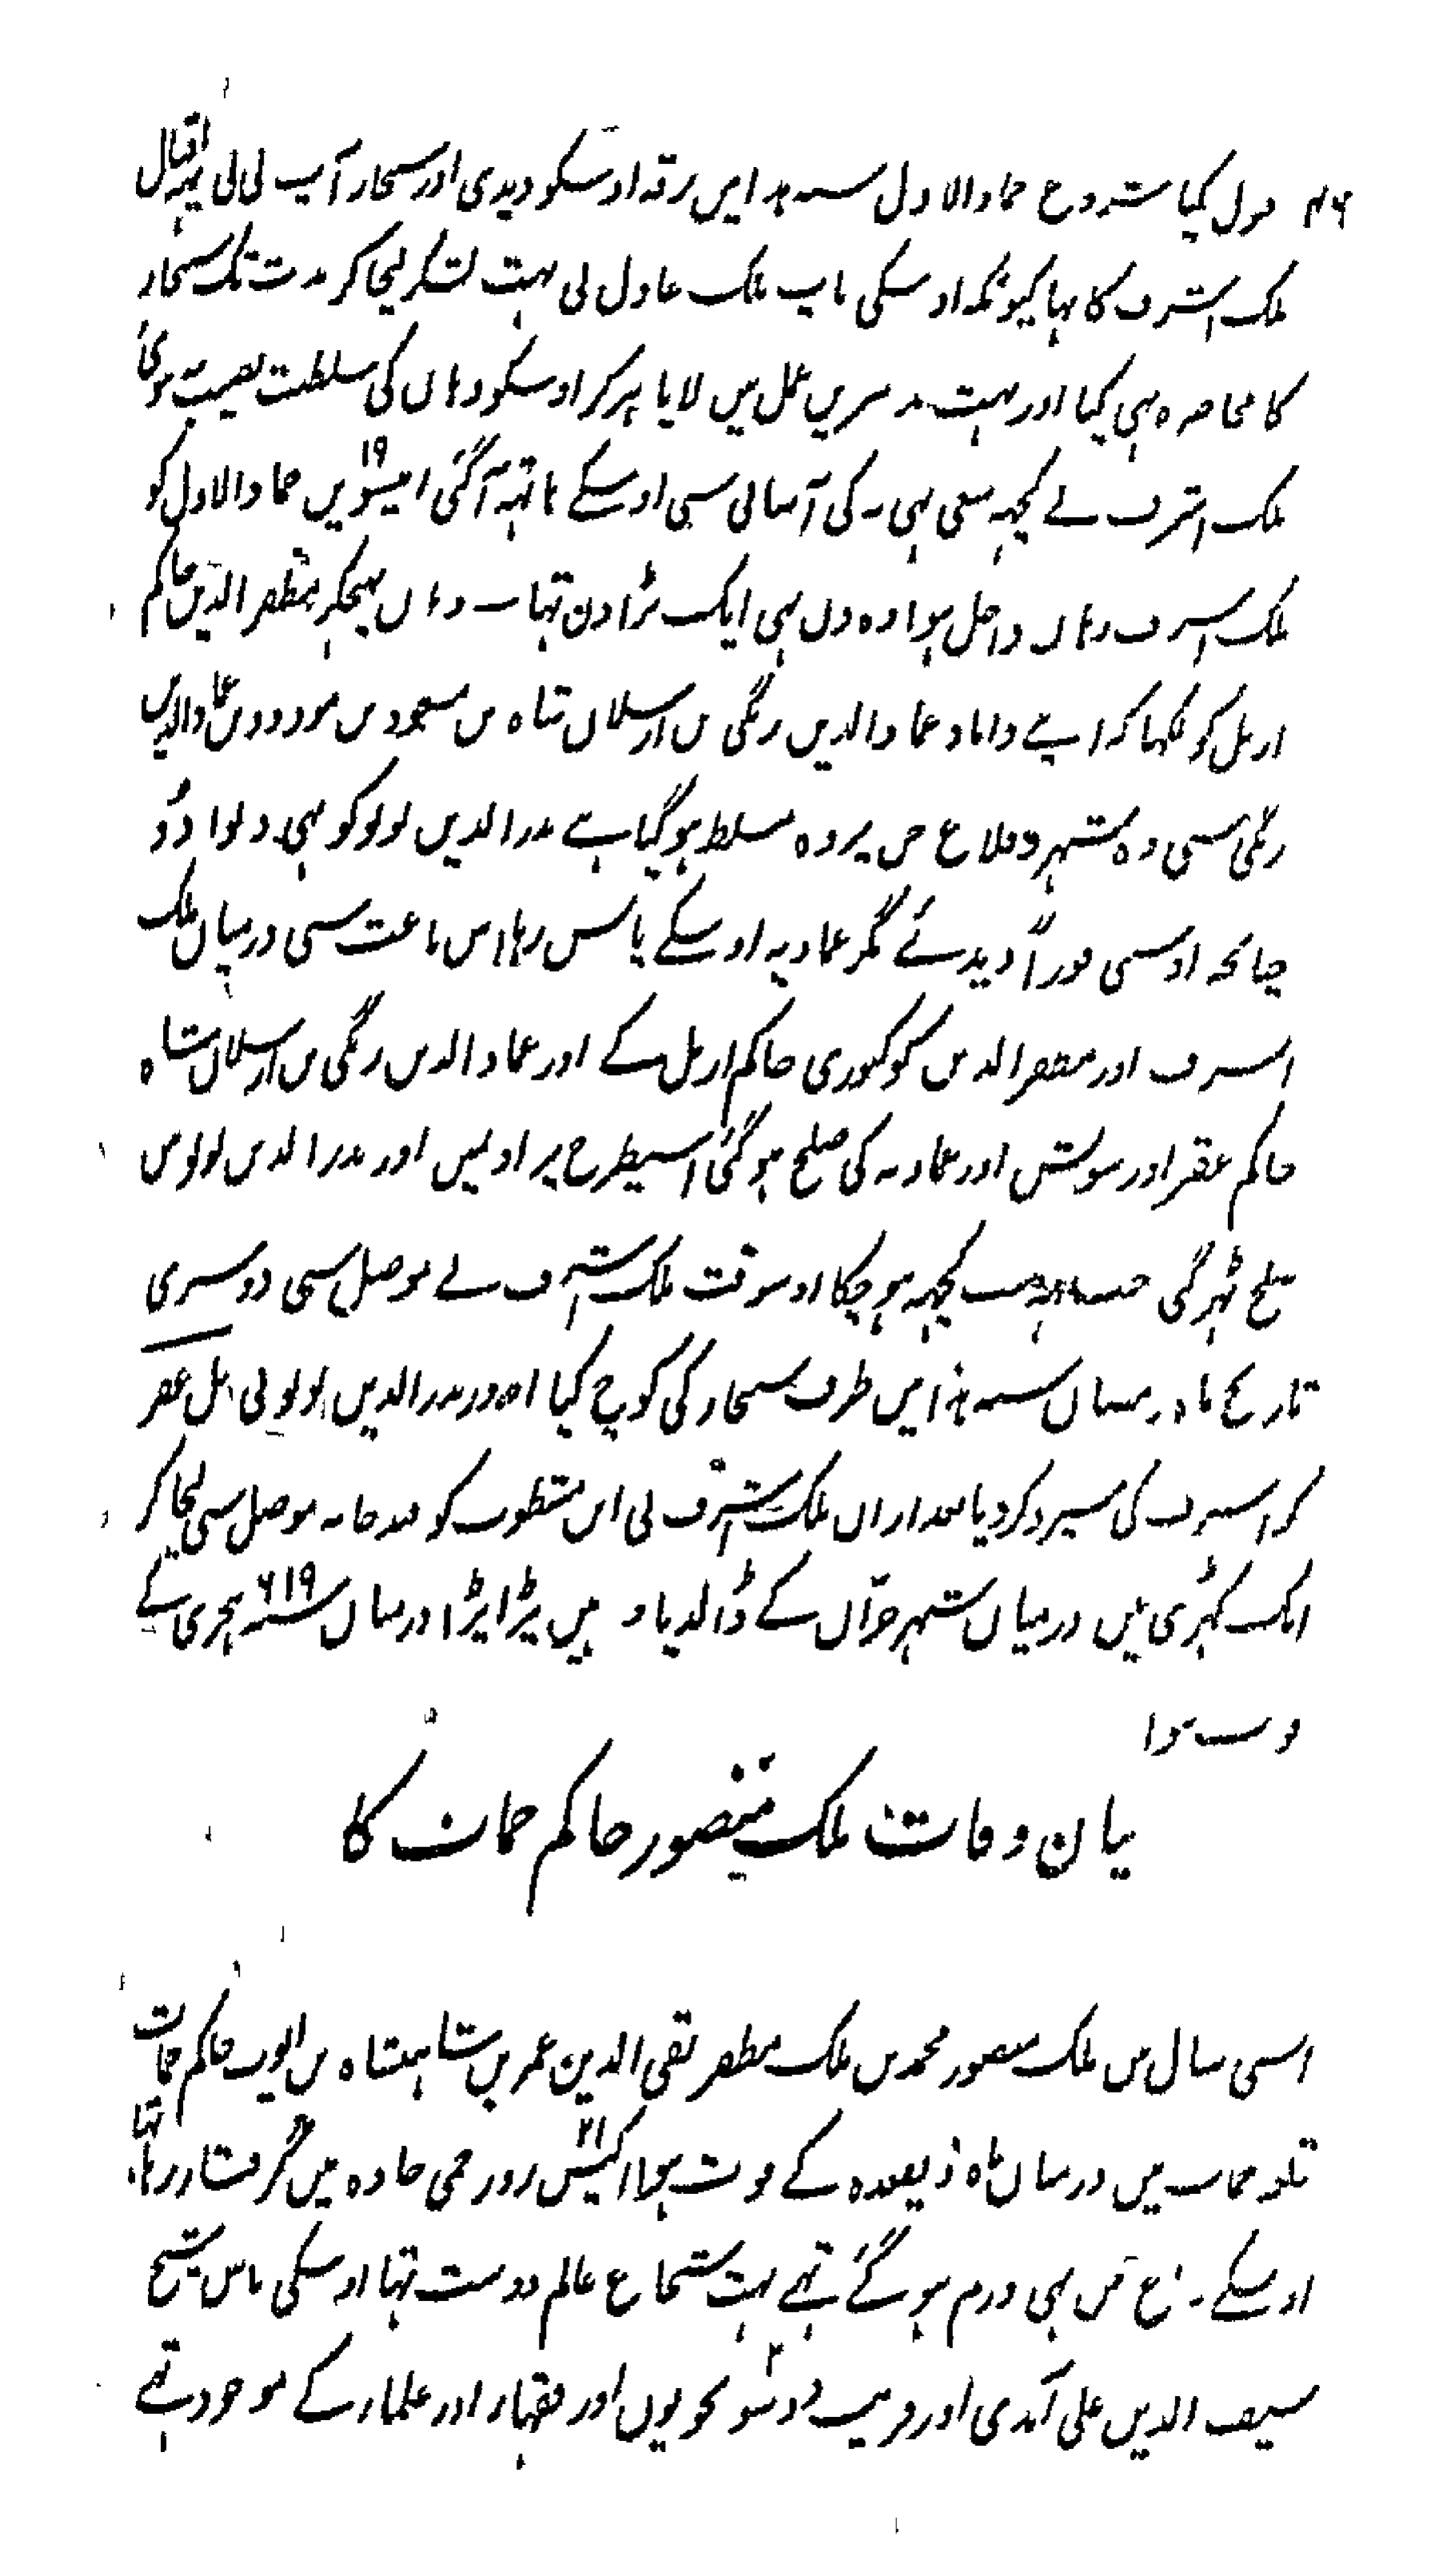 قبول کیا شروع جمادالاول سنہ ہذا میں رقہ اوسکو دیدی اور سنجار آپ لی لی یہہ اقبال
ملک اشرف کا تہا کیونکہ اوسکی باپ ملک عادل نی بہت لشکر لیجا کر مدت تک سنجار
کا محاصرہ بہی کیا اور بہت تدبیریں عمل میں لایا پر کر اوسکو وہاں کی سلطنت نصیب نہ ہوئی
ملک اشرف نے کچہہ سعی بہی نہ کی آسانی سی اوسکے ہاتہہ آگئی اونیسویں ۱۹ جمادالاول کو
ملک اشرف وہاں داخل ہوا وہ دن بہی ایک بڑا دن تہا وہاں پہنچکر مظفر الدین حاکم
اربل کو لکہا کہ اپنے داماد عماد الدین زنگی بن ارسلان شاہ بن مسعود بن مودود بن عماد الدین
زنگی سی وہ شہر و قلاع جس پر وہ مسلط ہوگیا ہے بدر الدین لولو کو بہی دلوا دو
چنانچہ اوسی فوراً دیدئے مگر عمادیہ اوسکے پاس رہا اس باعث سی درمیان ملک
اشرف اور مظفر الدین کوکبوری حاکم اربل کے اور عماد الدین زنگی بن ارسلان شاہ
حاکم عقر اور سوش اور عمادیہ کی صلح ہوگئی اسیطرح پر اولیں اور بدر الدین لولو میں
صلح ٹہر گی جب یہہ سب کچہہ ہو چکا اوسوقت ملک اشرف نے موصل سی دوسری
تاریخ ماہ رمضان سنہ ہذا میں طرف سنجار کی کوچ کیا اور بدر الدین لولو نی تل عفر
کو اشرف کی سپرد کردیا بعد ازاں ملک اشرف نی ابن مشطوب کو قیدخانہ موصل سی لیجا کر
ایک کہٹری میں درمیان شہر حرّان کے ڈالدیا وہیں پڑا پڑا درمیان سنہ ۶۱۹ ہجری کے
فوت ہوا
بیان وفات ملک منصور حاکم حمات کا
اسی سال میں ملک منصور محمد بن ملک مظفر تقی الدین عمر بن شاہنشاہ بن ایوب حاکم حمات
قلعہ حمات میں درمیان ماہ ذیقعدہ کے فوت ہوا اکیس ۲۱ روز حمی حادہ میں گرفتار رہا تہا
اوسکے دماغ میں بہی ورم ہوگئے تہے بہت شجاع عالم دوست تہا اوسکی پاس شیخ
سیف الدین علی آمدی اور قریب دو سو نحویوں اور فقہاء اور علماء کے موجود تہے